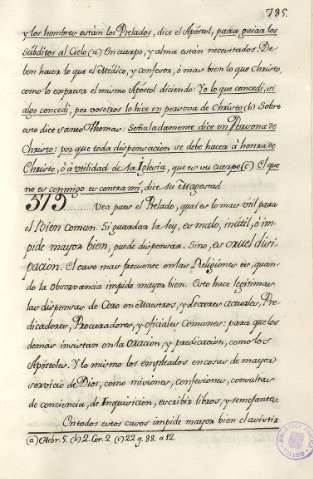 785.
y los hombres están los Prelados, dice el Apóstol, para guiar los
súbditos al Cielo (a) En cuerpo, y alma están necesitados. De
ben hacer lo que el Médico, y confesor, ó mas bien lo que Christo,
como lo expresa el mismo Apóstol diciendo: Yo lo que concedi, si
algo concedi, por vosotros lo hice en persona de Christo (b). Sobre
esto dice Santo Thomas: Señaladamente dice en Persona de
Christo: por que toda dispensacion se debe hacer á honra de
Christo, ó á utilidad de su Iglesia, que es su cuerpo (c) El que
no es conmigo es contra mi, dice su Magestad.
575 Vea pues el Prelado, qual es lo mas util para
el Bien comun. Si guardar la ley, es malo, inútil, ó im
pide mayor bien, puede dispensar. Sino, es cruel disi
pacion. El caso mas frecuente en las Religiones es, quan
do la observancia impide mayor bien. Esto hace legitimas
las dispensas de Coro en Maestros, y Lectores actuales, Pre
dicadores, Procuradores, y oficiales comunes: para que los
demás insistan en la oracion, y predicacion, como los
Apóstoles. Y lo mismo los empleados en cosas de mayor
servicio de Dios, como misiones, confesiones, consultas
de conciencia, de Inquisicion, escribir libros, y semejantes.
En todos estos casos impide mayor bien el asistir
(a) Hebr. 5. (b) 2. Cor. 2. (c) 22 q. 88. a 12.